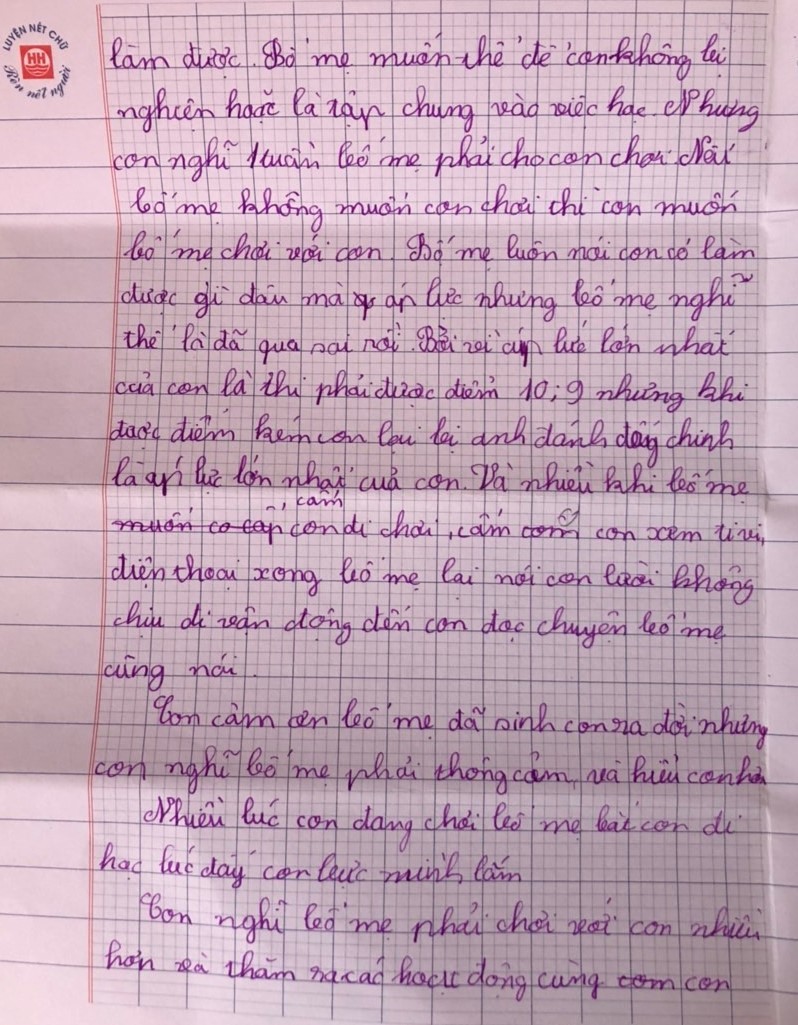 LUYỆN NÉT CHỮ
HH
Rèn nết người
làm được. Bố mẹ muốn thế để con không bị
nghiện hoặc là tập chung vào việc học. Nhưng
con nghĩ 1 tuần bố mẹ phải cho con chơi. Nếu
bố mẹ không muốn con chơi chỉ con muốn
bố mẹ chơi với con. Bố mẹ luôn nói con có làm
được gì đâu mà áp lực nhưng bố mẹ nghĩ
thế là đã quá sai rồi. Bởi vì áp lực lớn nhất
của con là thi phải được điểm 10; 9 nhưng khi
được điểm kém con lại bị anh đánh đấy chính
là áp lực lớn nhất của con. Và nhiều khi bố mẹ
cấm
muốn co cấp con đi chơi, cấm con xem tivi,
điện thoại xong bố mẹ lại nói con lười không
chịu đi vận động đến con đọc chuyện bố mẹ
cũng nói.
Con cảm ơn bố mẹ đã sinh con ra đời nhưng
con nghĩ bố mẹ phải thông cảm, và hiểu con hơn
Nhiều lúc con đang chơi bố mẹ bắt con đi
học lúc đấy con bực mình lắm
Con nghĩ bố mẹ phải chơi với con nhiều
hơn và thăm ra các hoạt động cùng com con